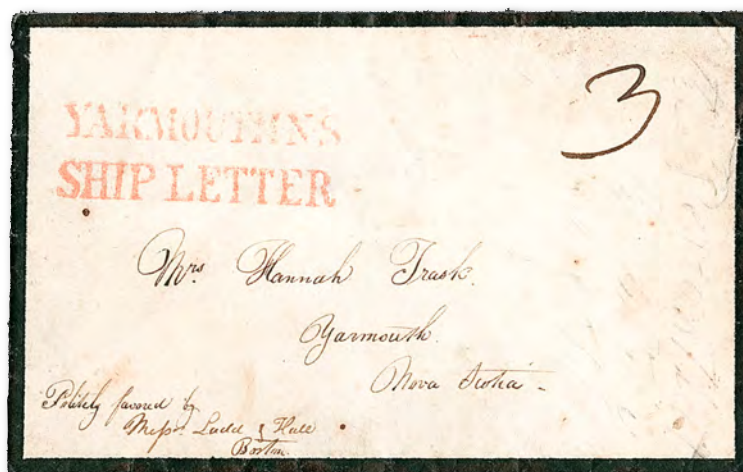 YARMOUTH NS
SHIP LETTER
3
Mrs Hannah Trask.
Yarmouth.
Nova Scotia -
Politely favored by
Messrs Ladd & Hall
Boston.